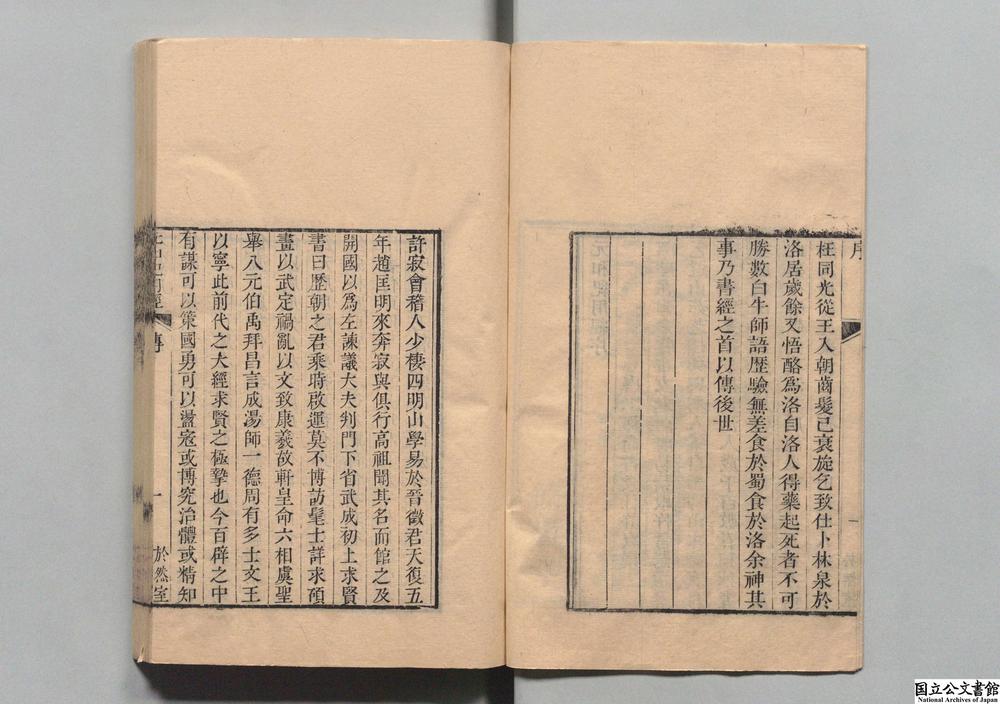 序
枉同光從王入朝齒髮已衰旋乞致仕卜林泉於
洛居歲餘又悟酪為洛自洛人得藥起死者不可
勝數白牛師語歷驗無差食於蜀食於洛余神其
事乃書經之首以傳後世
一
許寂會稽人少棲四明山學易於晉徵君天復五
年趙匡明來奔寂與俱行高祖聞其名而館之及
開國以為左諫議大夫判門下省武成初上求賢
書曰歷朝之君乘時啟運莫不博訪髦士詳求碩
畫以武定禍亂以文致康羲故軒皇命六相虞聖
舉八元伯禹拜昌言成湯師一德周有多士文王
以寧此前代之大經求賢之極摯也今百辟之中
有謀可以策國勇可以盪寇或博究治體或精知
傳
一
於然室
国立公文書館
National Archives of Japan